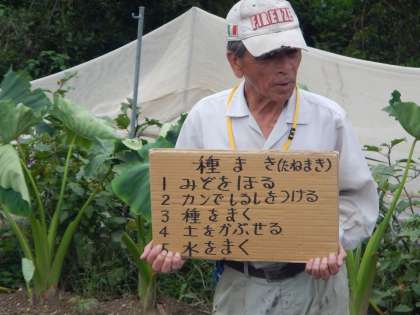 FIRENZE
種まき(たねまき)
1 みぞをほる
2 カンでしるしをつける
3 種をまく
4 土をかぶせる
5 水をまく